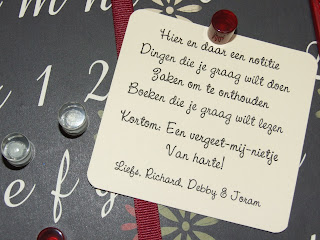 Hier en daar een notitie
Dingen die je graag wilt doen
Zaken om te onthouden
Boeken die je graag wilt lezen
Kortom: Een vergeet-mij-nietje
Van harte!
Liefs, Richard, Debby & Joram
m n
1 2
e f g